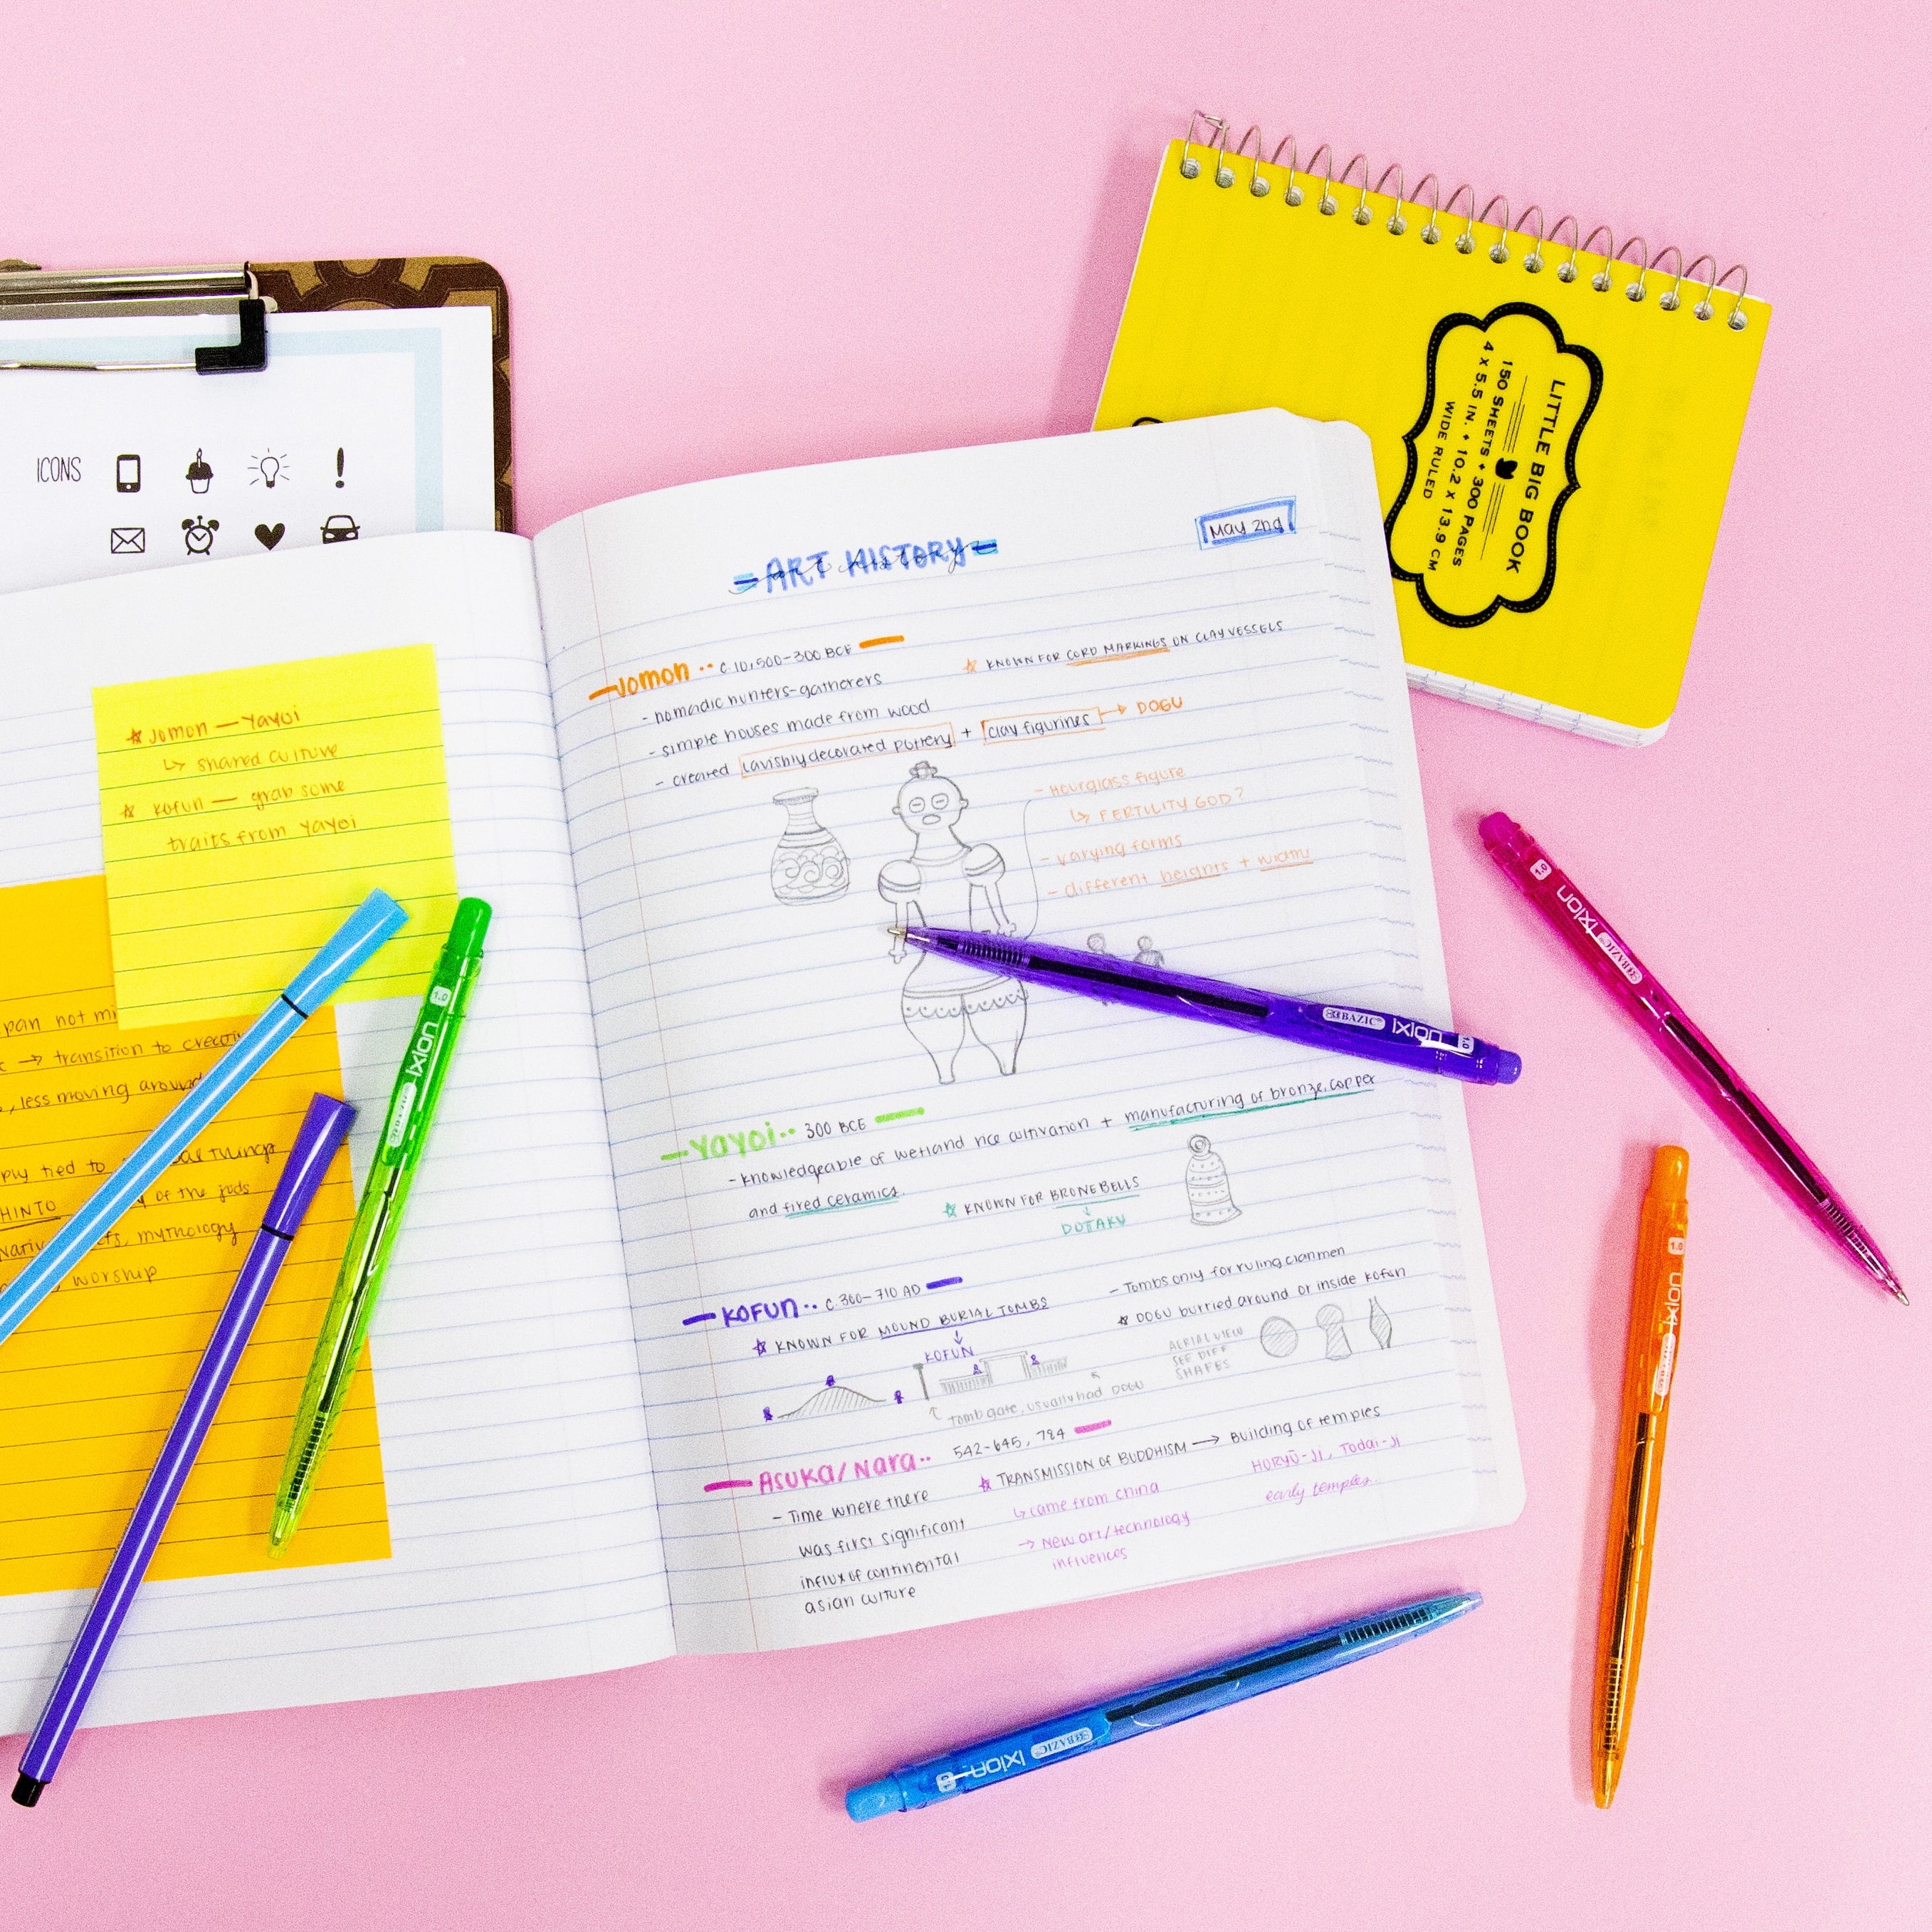 ICONS
LITTLE BIG BOOK
150 SHEETS + 300 PAGES
4 X 5.5 IN. + 10.2 X 13.9 CM
WIDE RULED
ART HISTORY
May 2nd
Jomon •• C.10,500-300 BCE
☆ KNOWN FOR CORD MARKINGS ON CLAY VESSELS
- nomadic hunters-gatherers
- simple houses made from wood
- created lavishly decorated pottery + clay figurines → DOGU
- Hourglass figure
↳ FERTILITY GOD?
- varying forms
- different heights + width
Yayoi •• 300 BCE
- knowledgeable of wetland rice cultivation + manufacturing of bronze, copper
and fired ceramics
☆ KNOWN FOR BRONE BELLS
↓
DOTAKU
KOFUN •• C.300-710 AD
☆ KNOWN FOR MOUND BURIAL TOMBS
↓
KOFUN
- Tombs only for ruling clanmen
☆ DOGU burried around or inside kofun
AERIAL VIEW
SEE DIFF
SHAPES
Tomb gate, usually had DOGU
ASUKA/Nara •• 542-645, 784
- Time where there
was first significant
influx of continental
asian culture
☆ TRANSMISSION OF BUDDHISM → Building of temples
↳ came from china
→ New art/technology
influences
HORYŪ-JI, Todai-Ji
early temples
☆ Jomon — Yayoi
↳ shared culture
☆ Kofun — grab some
traits from Yayoi
pan not
→ transition to
, less moving around
tied to
of the
mythology
worship
1.0 ixion BAZIC
BAZIC ixion 1.0
1.0 ixion BAZIC
1.0 ixion BAZIC
ixion BAZIC